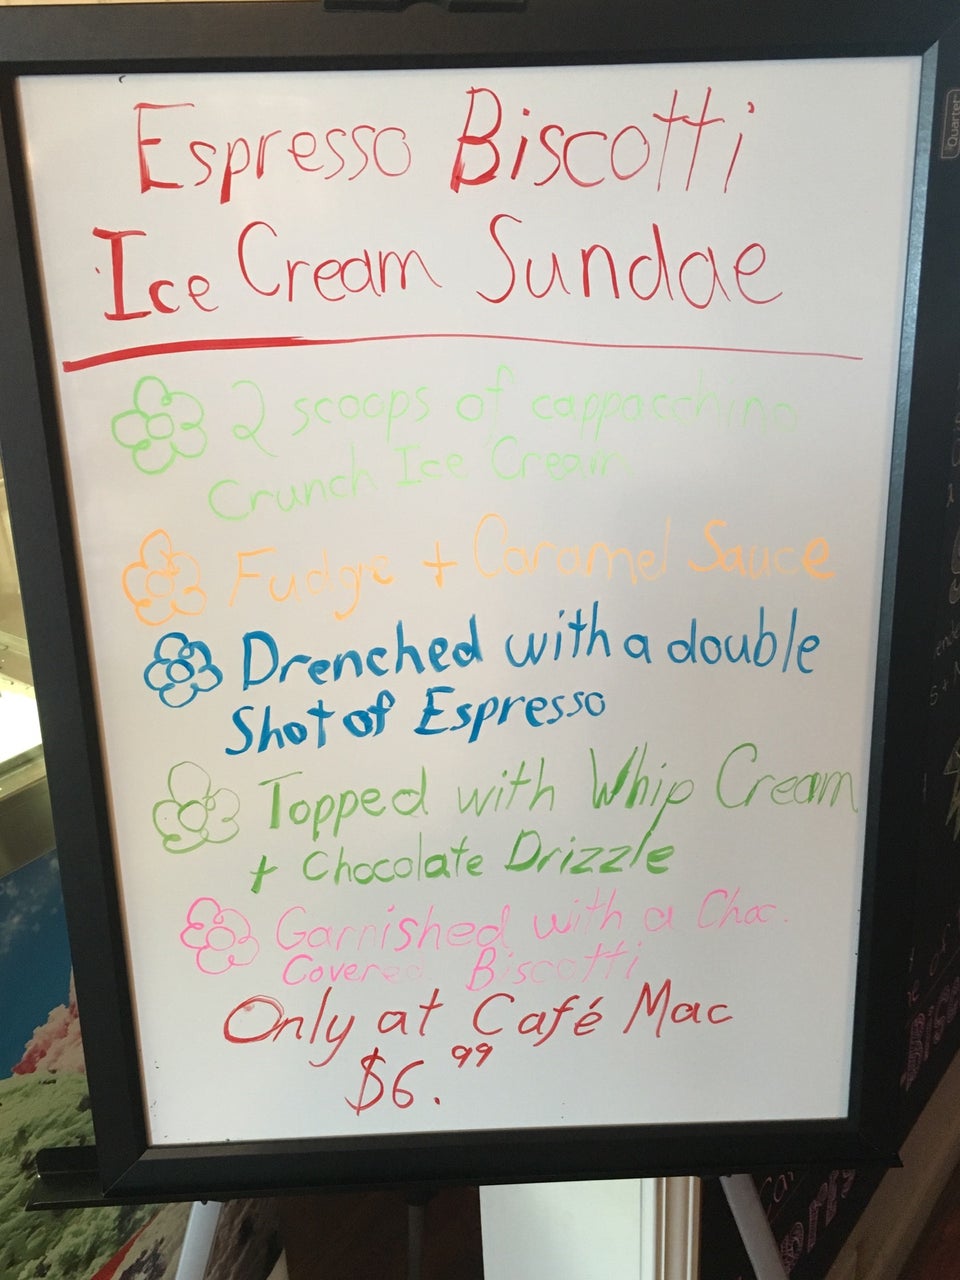 Espresso Biscotti
Ice Cream Sundae
2 scoops of cappacchino
Crunch Ice Cream
Fudge + Caramel Sauce
Drenched with a double
Shot of Espresso
Topped with Whip Cream
+ Chocolate Drizzle
Garnished with a Choc.
Covered Biscotti
Only at Café Mac
$6.99
Quartet